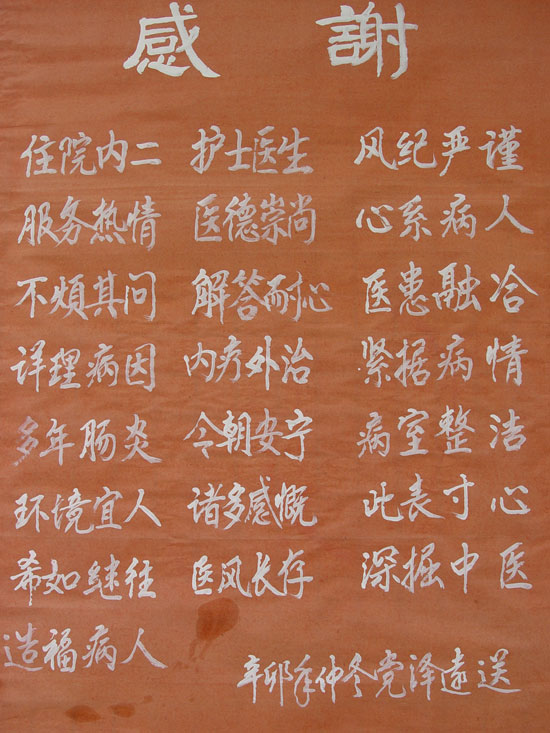 感謝
住院内二 护士医生 风纪严谨
服务热情 医德崇尚 心系病人
不煩其问 解答耐心 医患融洽
详理病因 内疗外治 紧据病情
多年肠炎 今朝安宁 病室整洁
环境宜人 诸多感慨 此表寸心
希如继往 医风长存 深掘中医
造福病人
辛卯年仲冬党泽远送